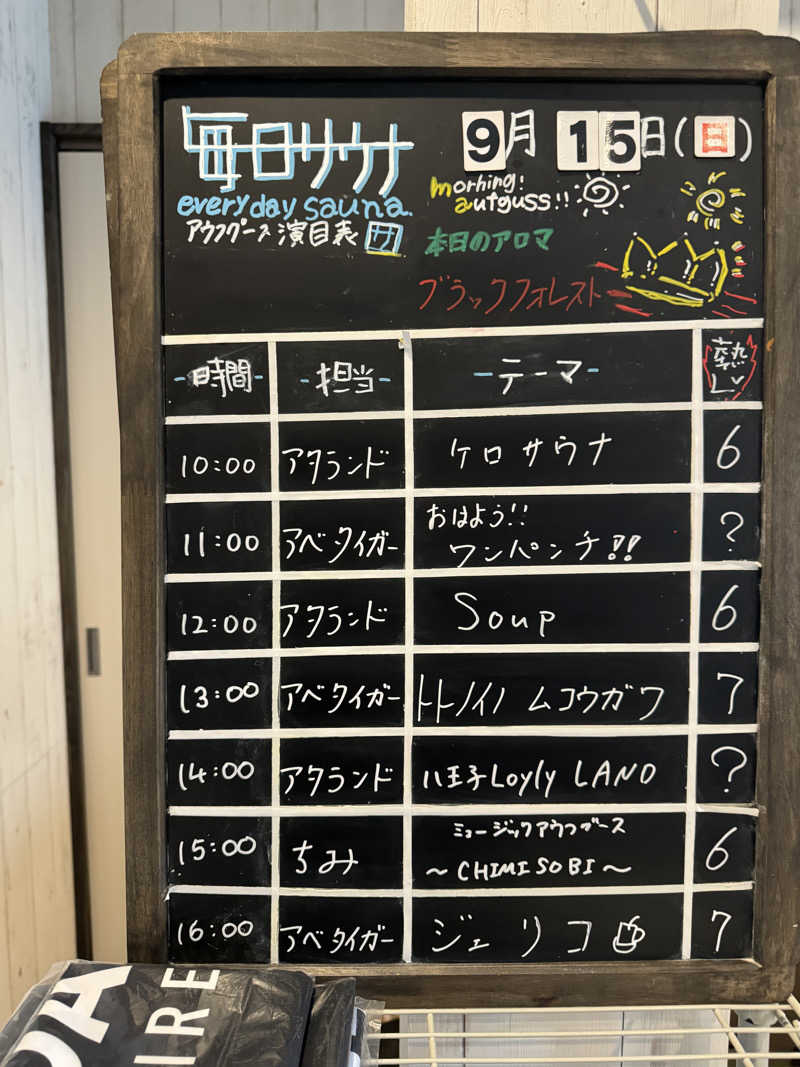 毎日サウナ
9月 15日(日)
every day sauna.
morning!
autguss!!
アウフグース演目表 サ
本日のアロマ
ブラックフォレスト
-時間- -担当- -テーマ- 熱レ
10:00 アタランド ケロサウナ 6
11:00 アベタイガー おはよう!!
ワンパンチ!! ?
12:00 アタランド Soup 6
13:00 アベタイガー トトノイノ ムコウガワ 7
14:00 アタランド 八王子Loyly LAND ?
15:00 ちみ ミュージックアウフグース
～CHIMISOBI～ 6
16:00 アベタイガー ジェリコ 7